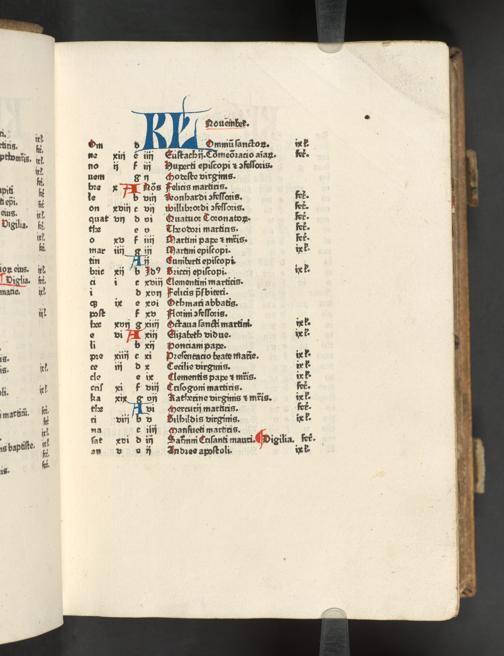 KL Nouember.
Om d Omniũ sanctoꝝ. ix ł.
ne xiij e iiij Eustachij. Cõmeõracio aĩaꝝ. fcĩ.
no ij f iij Huperti episcopi ⁊ ꝯfessoris.
uem g ij
bre x A Nõs Felicis martiris.
le b viij Leonhardi ꝯfessoris. fcĩ.
on xviij c vij Willibrordi ꝯfessoris. fcĩ.
quat vij d vi Quatuor Coronatoꝝ. fcĩ.
the e v Theodori martiris. fcĩ.
o xv f iiij Martini pape ⁊ mr̃is. fcĩ.
mar iiij g iij Martini episcopi. ix ł.
tin A ij Cuniberti episcopi.
brie xij b Id9 Briccij episcopi. ix ł.
ci i c xviij Clementini martiris.
i d xvij Felicis pr̃sbiteri.
cp ix e xvi Othmari abbatis.
post f xv Florini ꝯfessoris.
hec xvij g xiiij Octaua sancti martini. ix ł.
e vi A xiij Elizabeth vidue. ix ł.
li b xij Ponciani pape.
pre xiiij c xi Presentacio beate marie. ix ł.
ce iij d x Cecilie virginis. ix ł.
cle e ix Clementis pape ⁊ mr̃is. ix ł.
cris xi f viij Crisogoni martiris. fcĩ.
ka xix g vij Katherine virginis ⁊ mr̃is. ix ł.
the A vi mercurij martiris. fcĩ.
ri viij b v Bilhildis virginis. ix ł.
na c iiij Mansueti martiris.
sat xvi d iij Saturnini Crisanti mauri. Vigilia. fcĩ.
an v e ij Andree apostoli. ix ł.